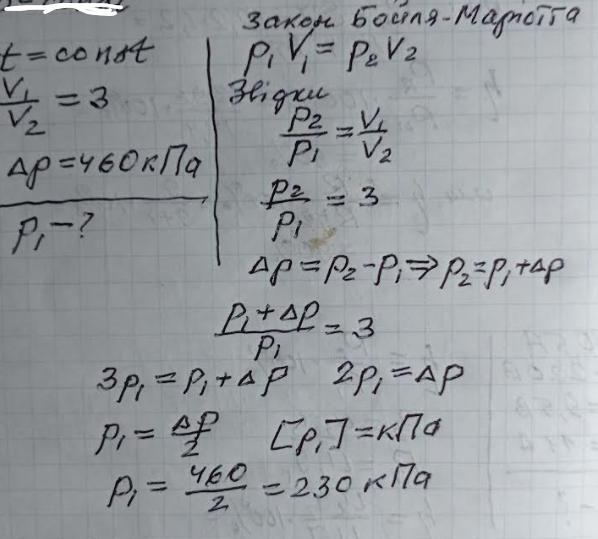 t = const
V₁/V₂ = 3
Δp = 460 кПа
p₁ - ?
Закон Бойля-Маріотта
p₁V₁ = p₂V₂
Звідки
p₂/p₁ = V₁/V₂
p₂/p₁ = 3
Δp = p₂ - p₁ ⇒ p₂ = p₁ + Δp
(p₁ + Δp)/p₁ = 3
3p₁ = p₁ + Δp 2p₁ = Δp
p₁ = Δp/2 [p₁] = кПа
p₁ = 460/2 = 230 кПа